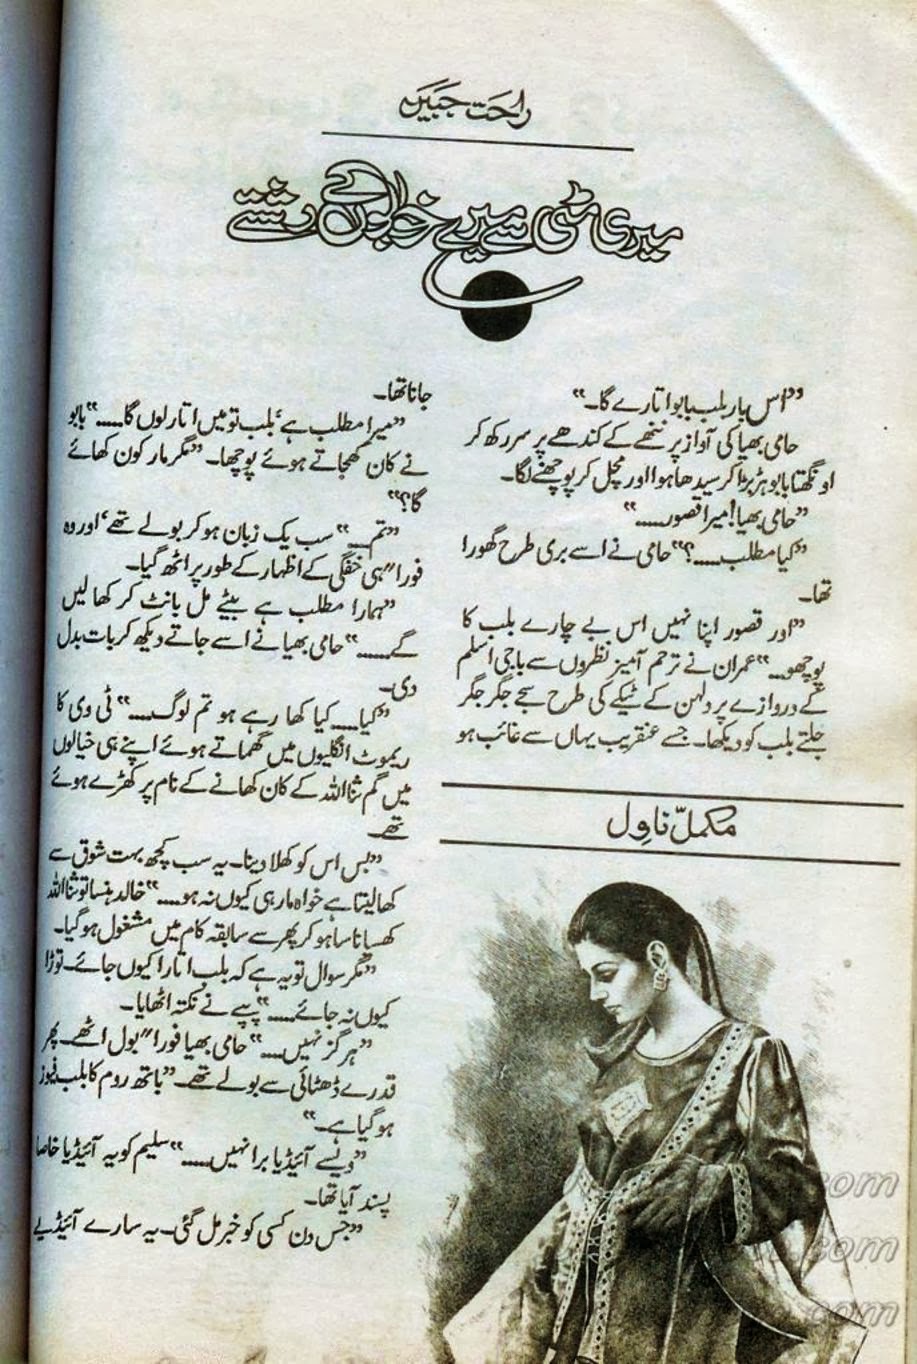 راحت جبیں
میری مٹی سے میرے خوابوں کے رشتے
”اس بار بلب بابو اتارے گا۔“
حامی بھیا کی آواز پر ننھے کے کندھے پر سر رکھ کر
اونگھتا بابو ہڑبڑا کر سیدھا ہوا اور مچل کر پوچھنے لگا۔
”حامی بھیا! میرا قصور.....“
”کیا مطلب.....؟“ حامی نے اسے بری طرح گھورا
تھا۔
”اور قصور اپنا نہیں اس بے چارے بلب کا
پوچھو...“ عمران نے ترحم آمیز نظروں سے باجی اسلم
کے دروازے پر دلہن کے ٹیکے کی طرح سجے جگر جگر
جلتے بلب کو دیکھا۔ جسے عنقریب یہاں سے غائب ہو
مکمل ناول
جانا تھا۔
”میرا مطلب ہے، بلب تو میں اتار لوں گا.....“ بابو
نے کان کھجاتے ہوئے پوچھا۔ ”مگر مار کون کھائے
گا؟“
”تم...“ سب یک زبان ہو کر بولے تھے، اور وہ
فوراً ہی خفگی کے اظہار کے طور پر اٹھ گیا۔
”ہمارا مطلب ہے بیٹے مل بانٹ کر کھا لیں
گے.....“ حامی بھیا نے اسے جاتے دیکھ کر بات بدل
دی۔
”کیا.... کیا کھا رہے ہو تم لوگ.....“ ٹی وی کا
ریموٹ انگلیوں میں گھماتے ہوئے اپنے ہی خیالوں
میں گم ثنا اللہ کے کان کھانے کے نام پر کھڑے ہوئے
تھے۔
”بس اس کو کھلا دینا۔ یہ سب کچھ بہت شوق سے
کھا لیتا ہے خواہ مار ہی کیوں نہ ہو.....“ خالد ہنسا تو ثنا اللہ
کھسیانا سا ہو کر پھر سے سابقہ کام میں مشغول ہو گیا۔
”مگر سوال تو یہ ہے کہ بلب اتارا کیوں جائے۔ توڑا
کیوں نہ جائے.....“ پپے نے نکتہ اٹھایا۔
”ہرگز نہیں....“ حامی بھیا فوراً بول اٹھے۔ پھر
قدرے ڈھٹائی سے بولے تھے۔ ”باتھ روم کا بلب فیوز
ہو گیا ہے۔“
”ویسے آئیڈیا برا نہیں.....“ سلیم کو یہ آئیڈیا خاصا
پسند آیا تھا۔
”جس دن کسی کو خبر مل گئی۔ یہ سارے آئیڈیے
.com
.com
com